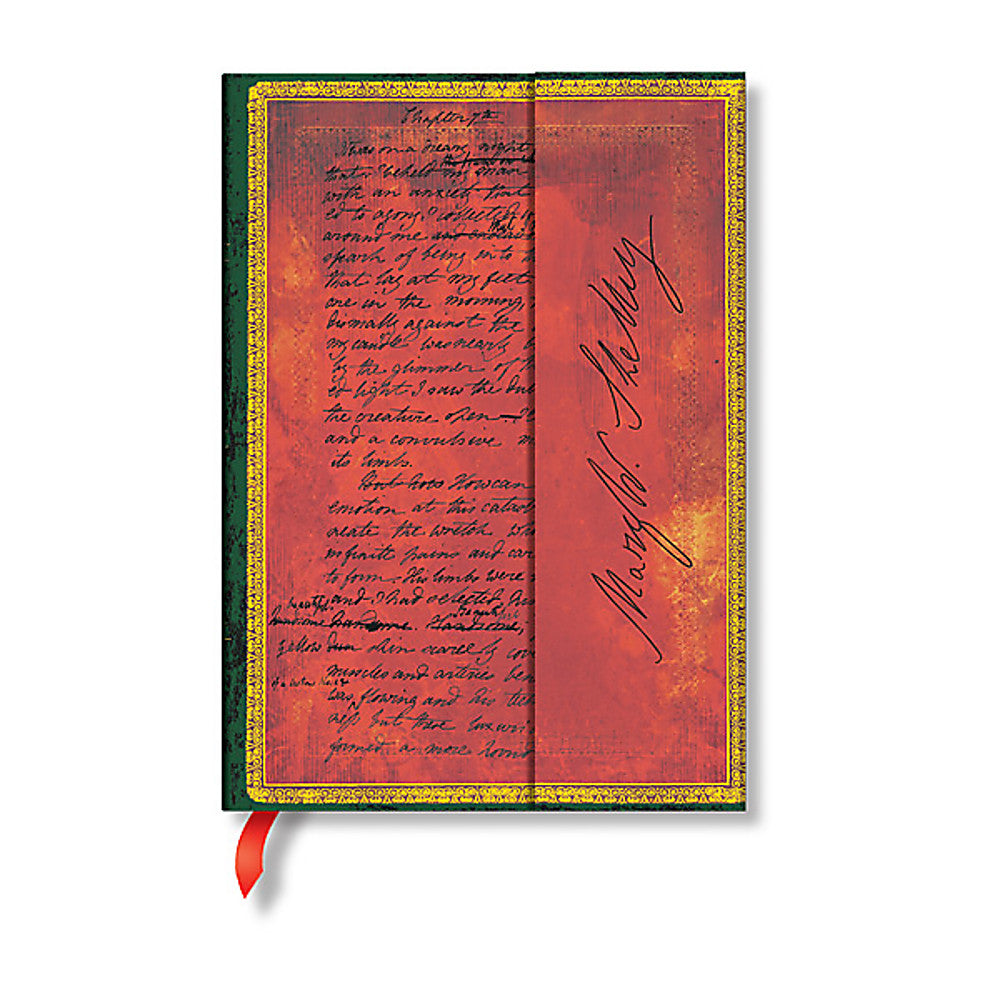 Chapter 7th
It was on a dreary night
that I beheld my man
with an anxiety that
ed to agony I collected
around me and endea
spark of being into
that lay at my feet
one in the morning,
dismally against the
my candle was nearly
by the glimmer of
ed light I saw the dul
the creature open
and a convulsive m
its limbs.
But how How can
emotion at this catas
create the wretch
infinite pains and car
to form. His limbs were
and I had selected his
beautiful
handsome handsome. Handsome,
yellow dun skin scarcely cov
muscles and arteries ben
was flowing and his tee
ness but these luxuri
formed a more
Mary W. Shelley